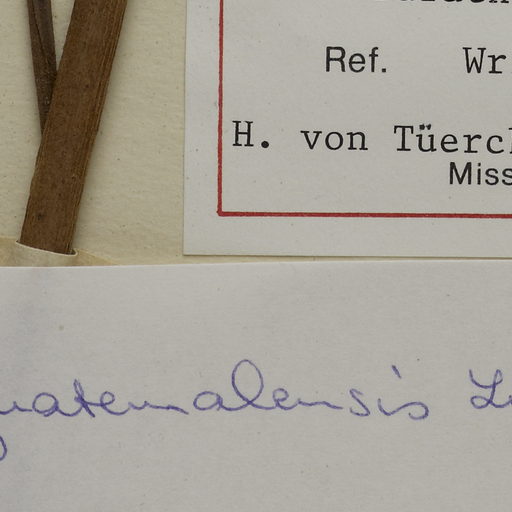 Ref. Wr
H. von Tüerc
Miss
uatemalensis L